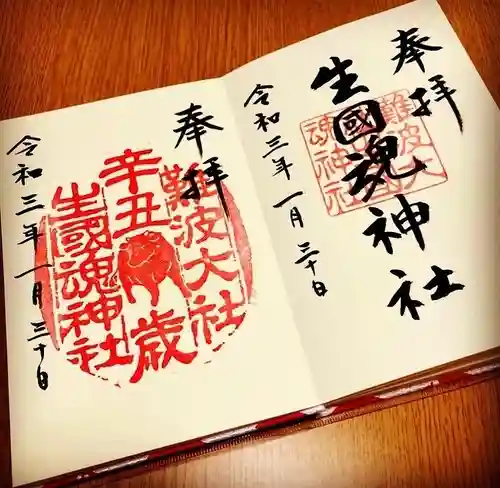 奉拝
生國魂神社
難波大社
生國魂神社
令和三年一月三十日
奉拝
難波大社
辛丑歳
生國魂神社
令和三年一月三十日